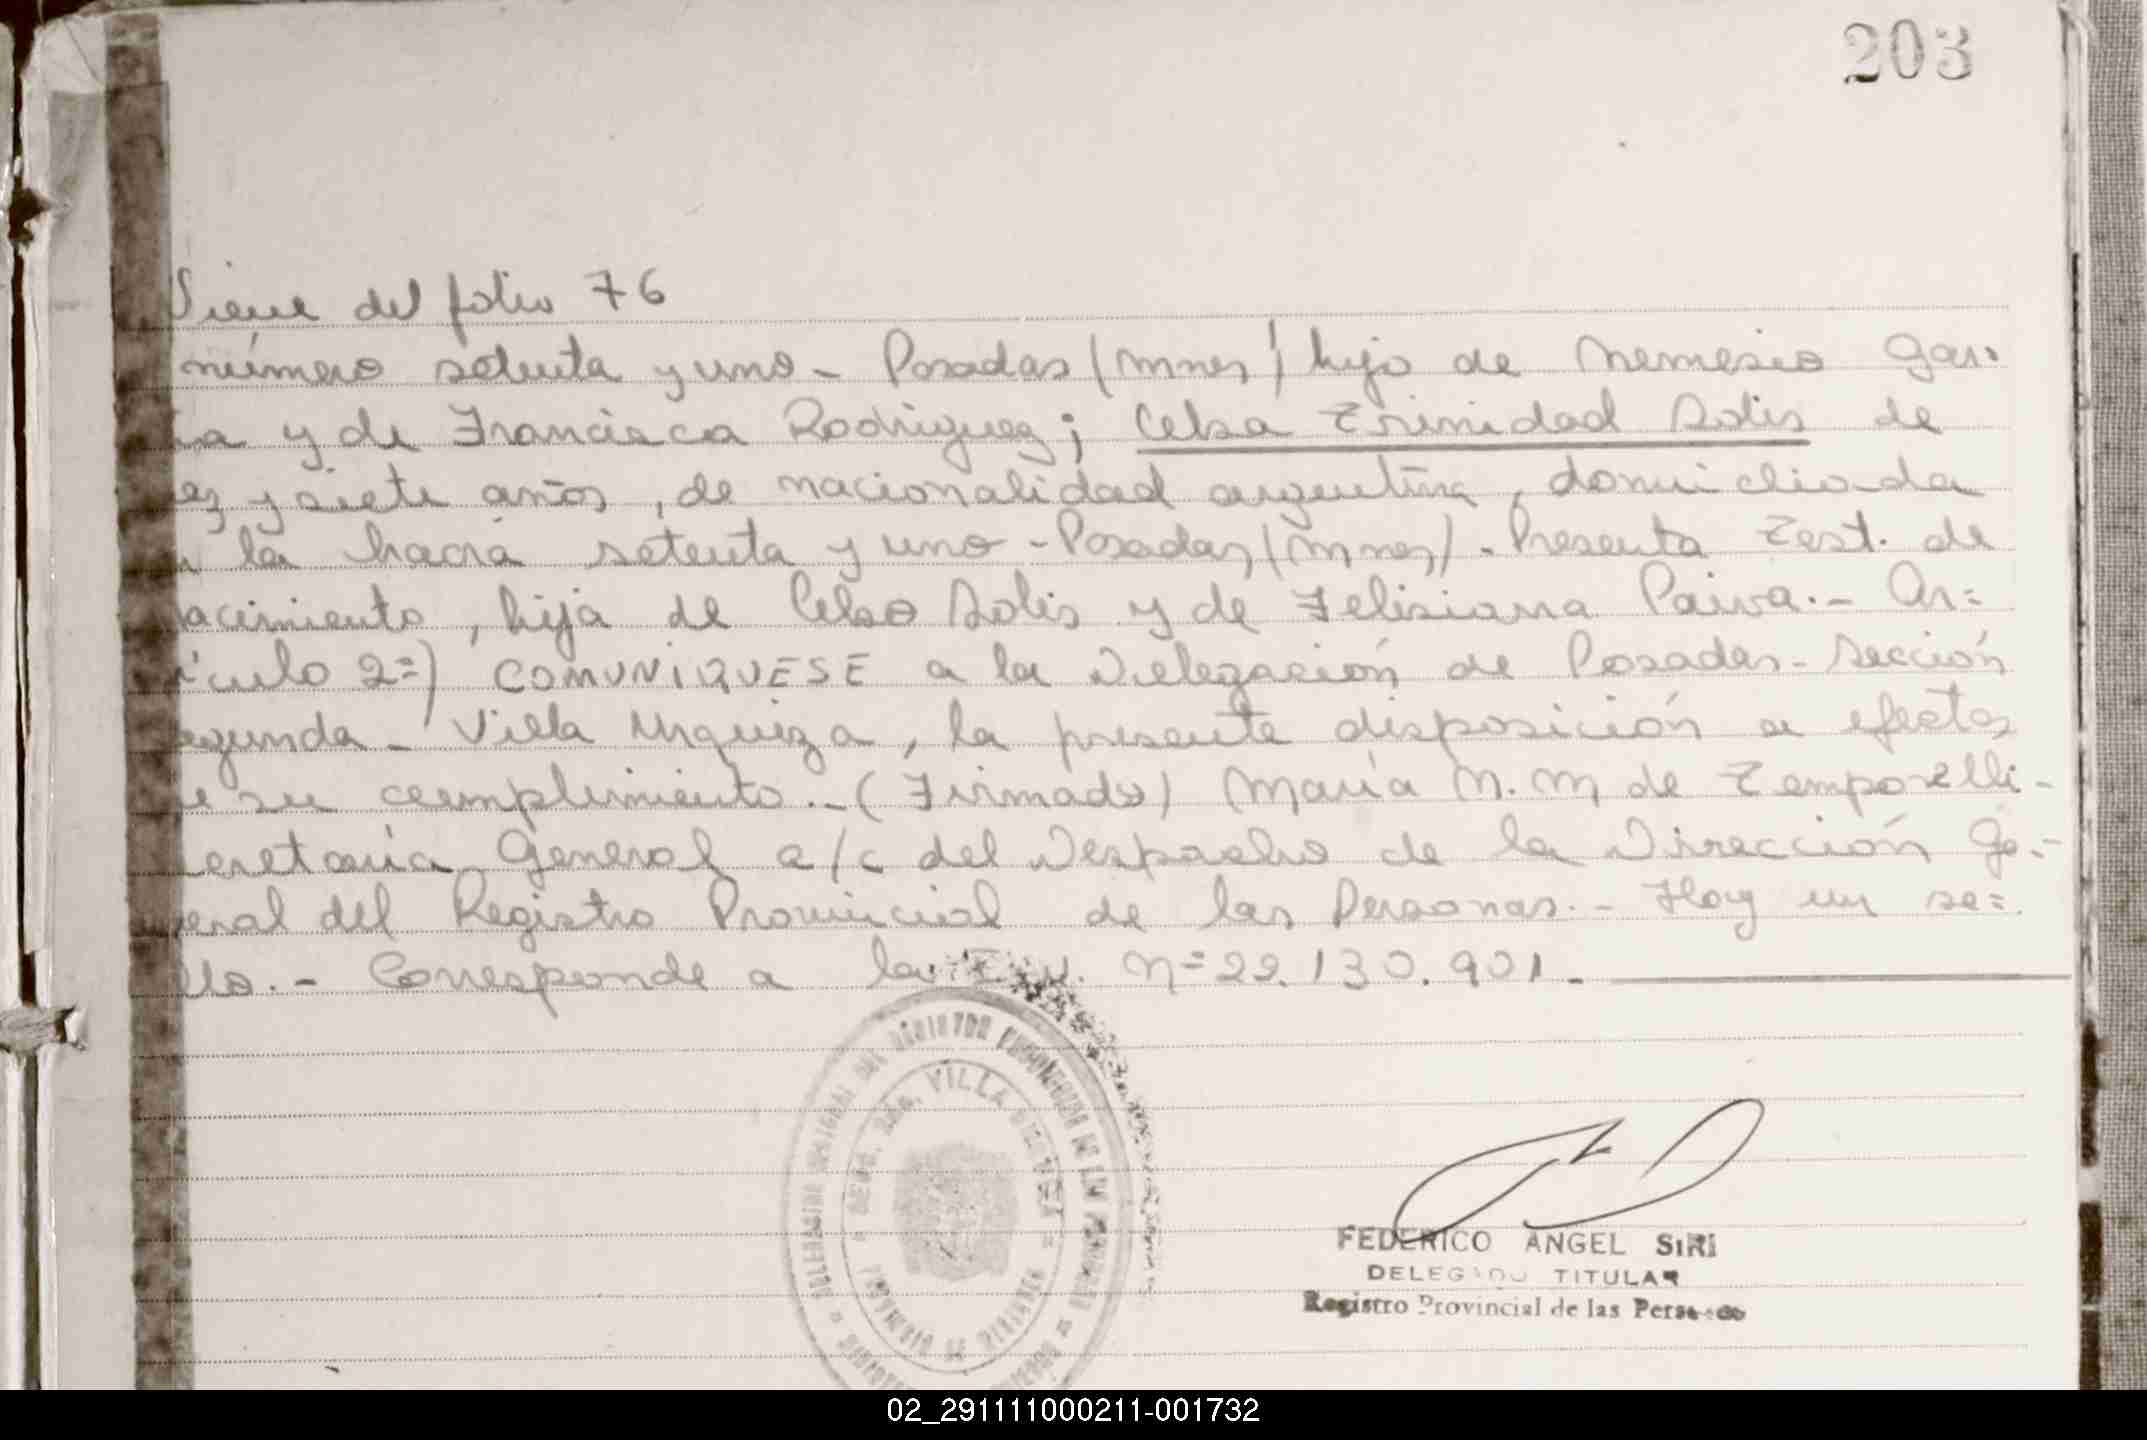 203
Viene del folio 76
número setenta y uno - Posadas (Mnes) hijo de Nemesio Gar-
ia y de Francisca Rodriguez; Celsa Trinidad Solis de
ez y siete años, de nacionalidad argentina, domicliada
n la hacra setenta y uno - Posadas (Mnes). Presenta Test. de
nacimiento, hija de Celso Solis y de Felisiana Paiva.- Ar=
ículo 2=) COMUNIQUESE a la Delegación de Posadas - Sección
egunda - Villa Urquiza, la presente disposición a efectos
de su cumplimiento.-(Firmado) María M. M de Temporelli -
cretaria General a/c del Despacho de la Dirección Ge.-
neral del Registro Provincial de las Personas.- Hay un se=
llo.- Corresponde a la N=22.130.901.-
DEL REGISTRO PROVINCIAL DE LAS
SECC. 2DA. VILLA URQUIZA
PROVINCIA DE MISIONES
FEDERICO ANGEL SIRI
DELEGADO TITULAR
Registro Provincial de las Personas
02_291111000211-001732